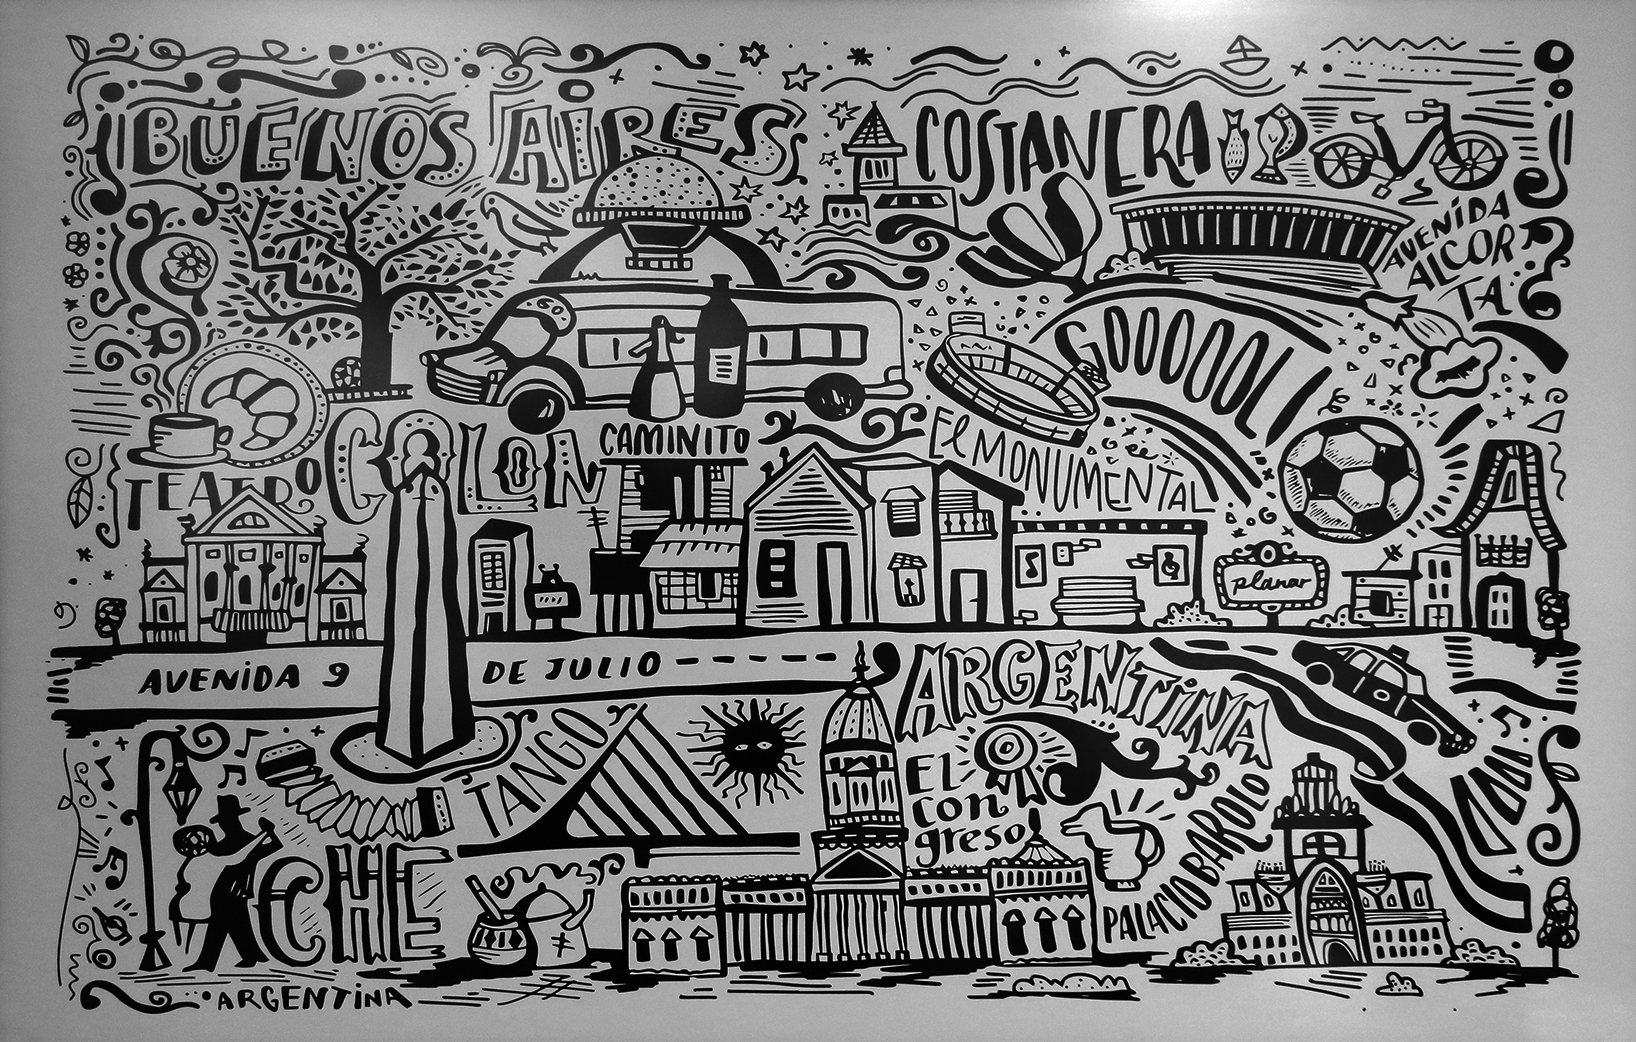 BUENOS AIRES
COSTANERA
AVENIDA
ALCOR
TA
GOOOOOL!
EL MONUMENTAL
CAMINITO
TEATRO COLON
planar
AVENIDA 9 DE JULIO
ARGENTINA
TANGO
EL
con
greso
PALACIO BAROLO
CHE
ARGENTINA